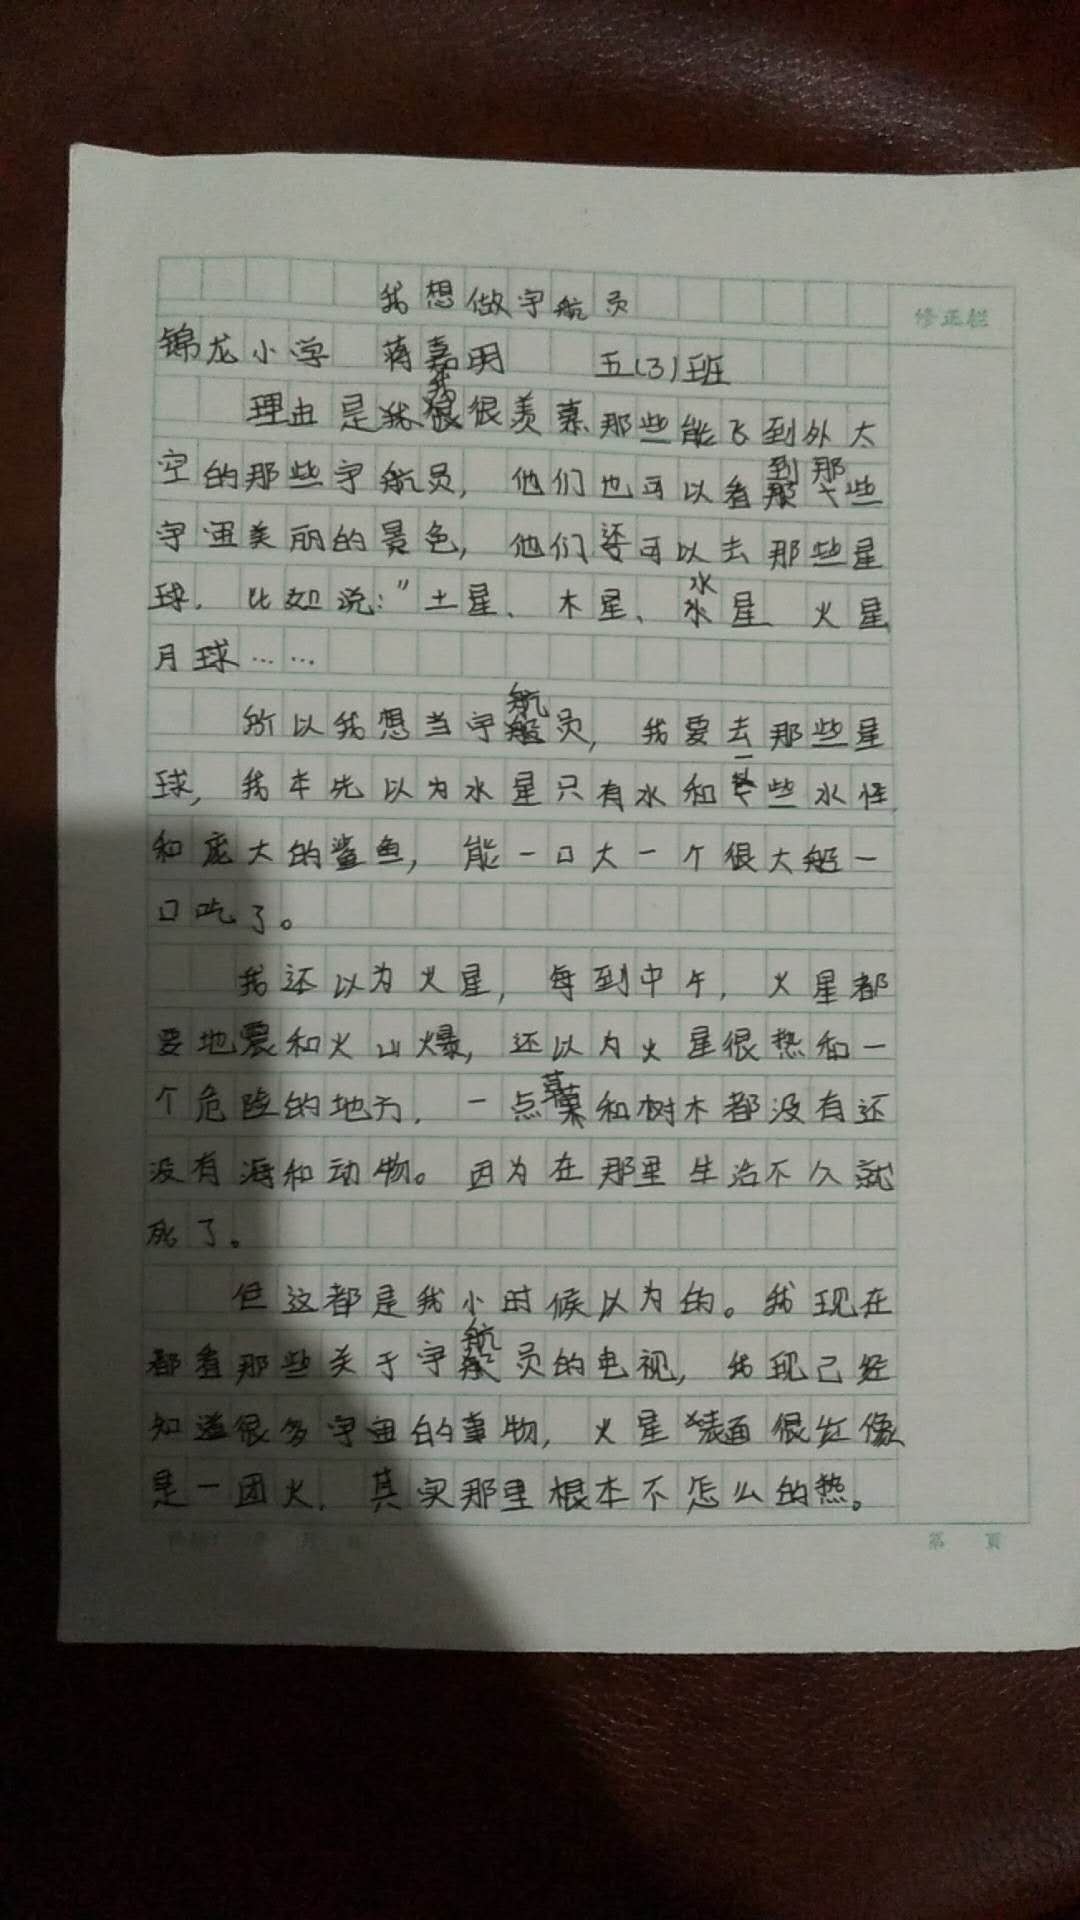 我想做宇航员
修正栏
锦龙小学 蒋嘉明 五(3)班
理由是我很羡慕那些能飞到外太
空的那些宇航员,他们也可以看到那些
宇宙美丽的景色,他们还可以去那些星
球.比如说:"土星、木星、水星、火星
月球……
所以我想当宇航员,我要去那些星
球,我本先以为水星只有水和一些水怪
和庞大的鲨鱼,能一口大一个很大船一
口吃了。
我还以为火星,每到中午,火星都
要地震和火山爆,还以为火星很热和一
个危险的地方,一点草和树木都没有还
没有海和动物。因为在那里生活不久就
死了。
但这都是我小时候以为的。我现在
都看那些关于宇航员的电视,我现已经
知道很多宇宙的事物,火星表面很红像
是一团火.其实那里根本不怎么的热。
第 页